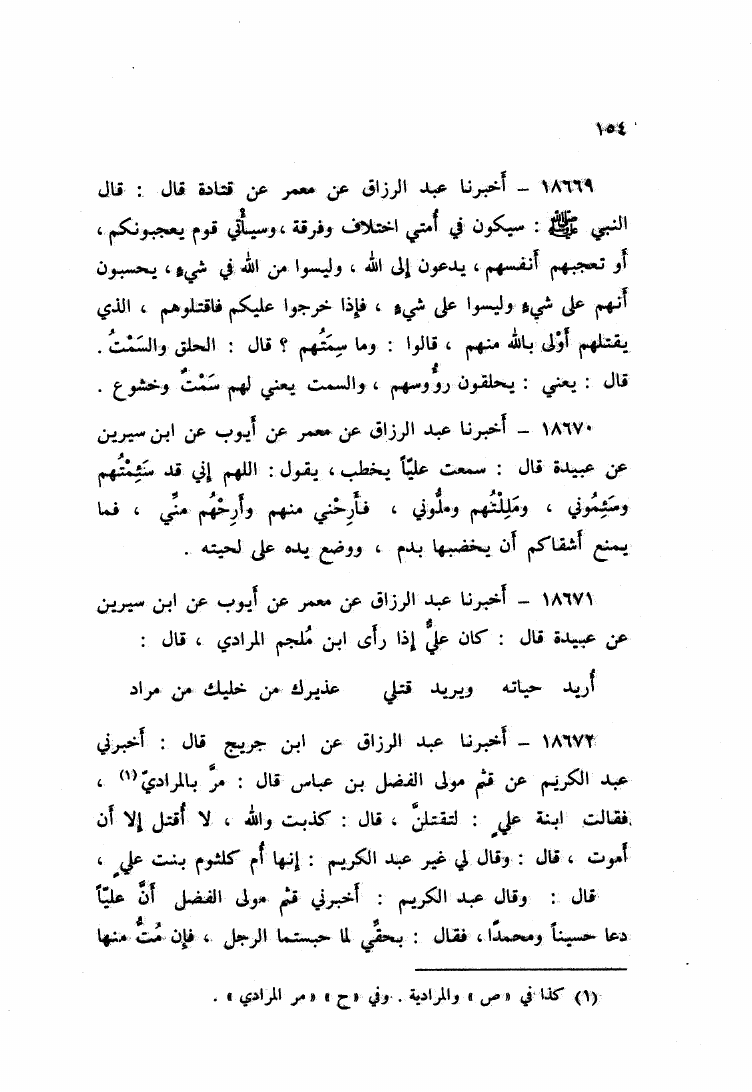 ١٥٤
١٨٦٦٩ – أخبرنا عبد الرزاق عن معمر عن قتادة قال : قال
النبي ﷺ : سيكون في أُمتي اختلاف وفرقة ، وسيأْتي قوم يعجبونكم ،
أو تعجبهم أنفسهم ، يدعون إلى الله ، وليسوا من الله في شيءٍ ، يحسبون
أنهم على شيءٍ وليسوا على شيءٍ ، فإذا خرجوا عليكم فاقتلوهم ، الذي
يقتلهم أَوْلى بالله منهم ، قالوا : وما سِمَتُهم ؟ قال : الحلق والسَمْتُ .
قال : يعني : يحلقون رؤُوسهم ، والسمت يعني لهم سَمْتٌ وخشوع .
١٨٦٧٠ – أخبرنا عبد الرزاق عن معمر عن أيوب عن ابن سيرين
عن عبيدة قال : سمعت عليّاً يخطب ، يقول : اللهم إني قد سَئِمْتُهم
وسَئِمُوني ، ومَلِلْتُهم وملُّوني ، فأَرِحْني منهم وأَرِحْهُم منِّي ، فما
يمنع أشقاكم أن يخضبها بدم ، ووضع يده على لحيته .
١٨٦٧١ – أخبرنا عبد الرزاق عن معمر عن أيوب عن ابن سيرين
عن عبيدة قال : كان عليٌّ إذا رأى ابن مُلجم المرادي ، قال :
أُريد حياته ويريد قتلي عذيرك من خليك من مراد
١٨٦٧٢ – أخبرنا عبد الرزاق عن ابن جريج قال : أخبرني
عبد الكريم عن قثم مولى الفضل بن عباس قال : مرَّ بالمراديّ (١) ،
فقالت ابنة علي : لتقتلنَّ ، قال : كذبت والله ، لا أُقتل إلا أن
أموت ، قال : وقال لي غير عبد الكريم : إنها أُم كلثوم بنت عليٍ ،
قال : وقال عبد الكريم : أخبرني قثم مولى الفضل أنَّ عليّاً
دعا حسيناً ومحمدًا ، فقال : بحقِّي لما حبستما الرجل ، فإن مُتُّ منها
(١) كذا في «ص» والمرادية . وفي «ح» «مر المرادي» .